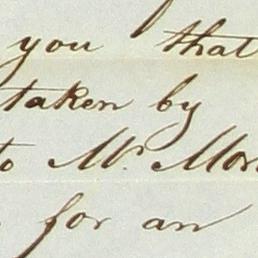 you that
taken by
to Mr. Mor
for an